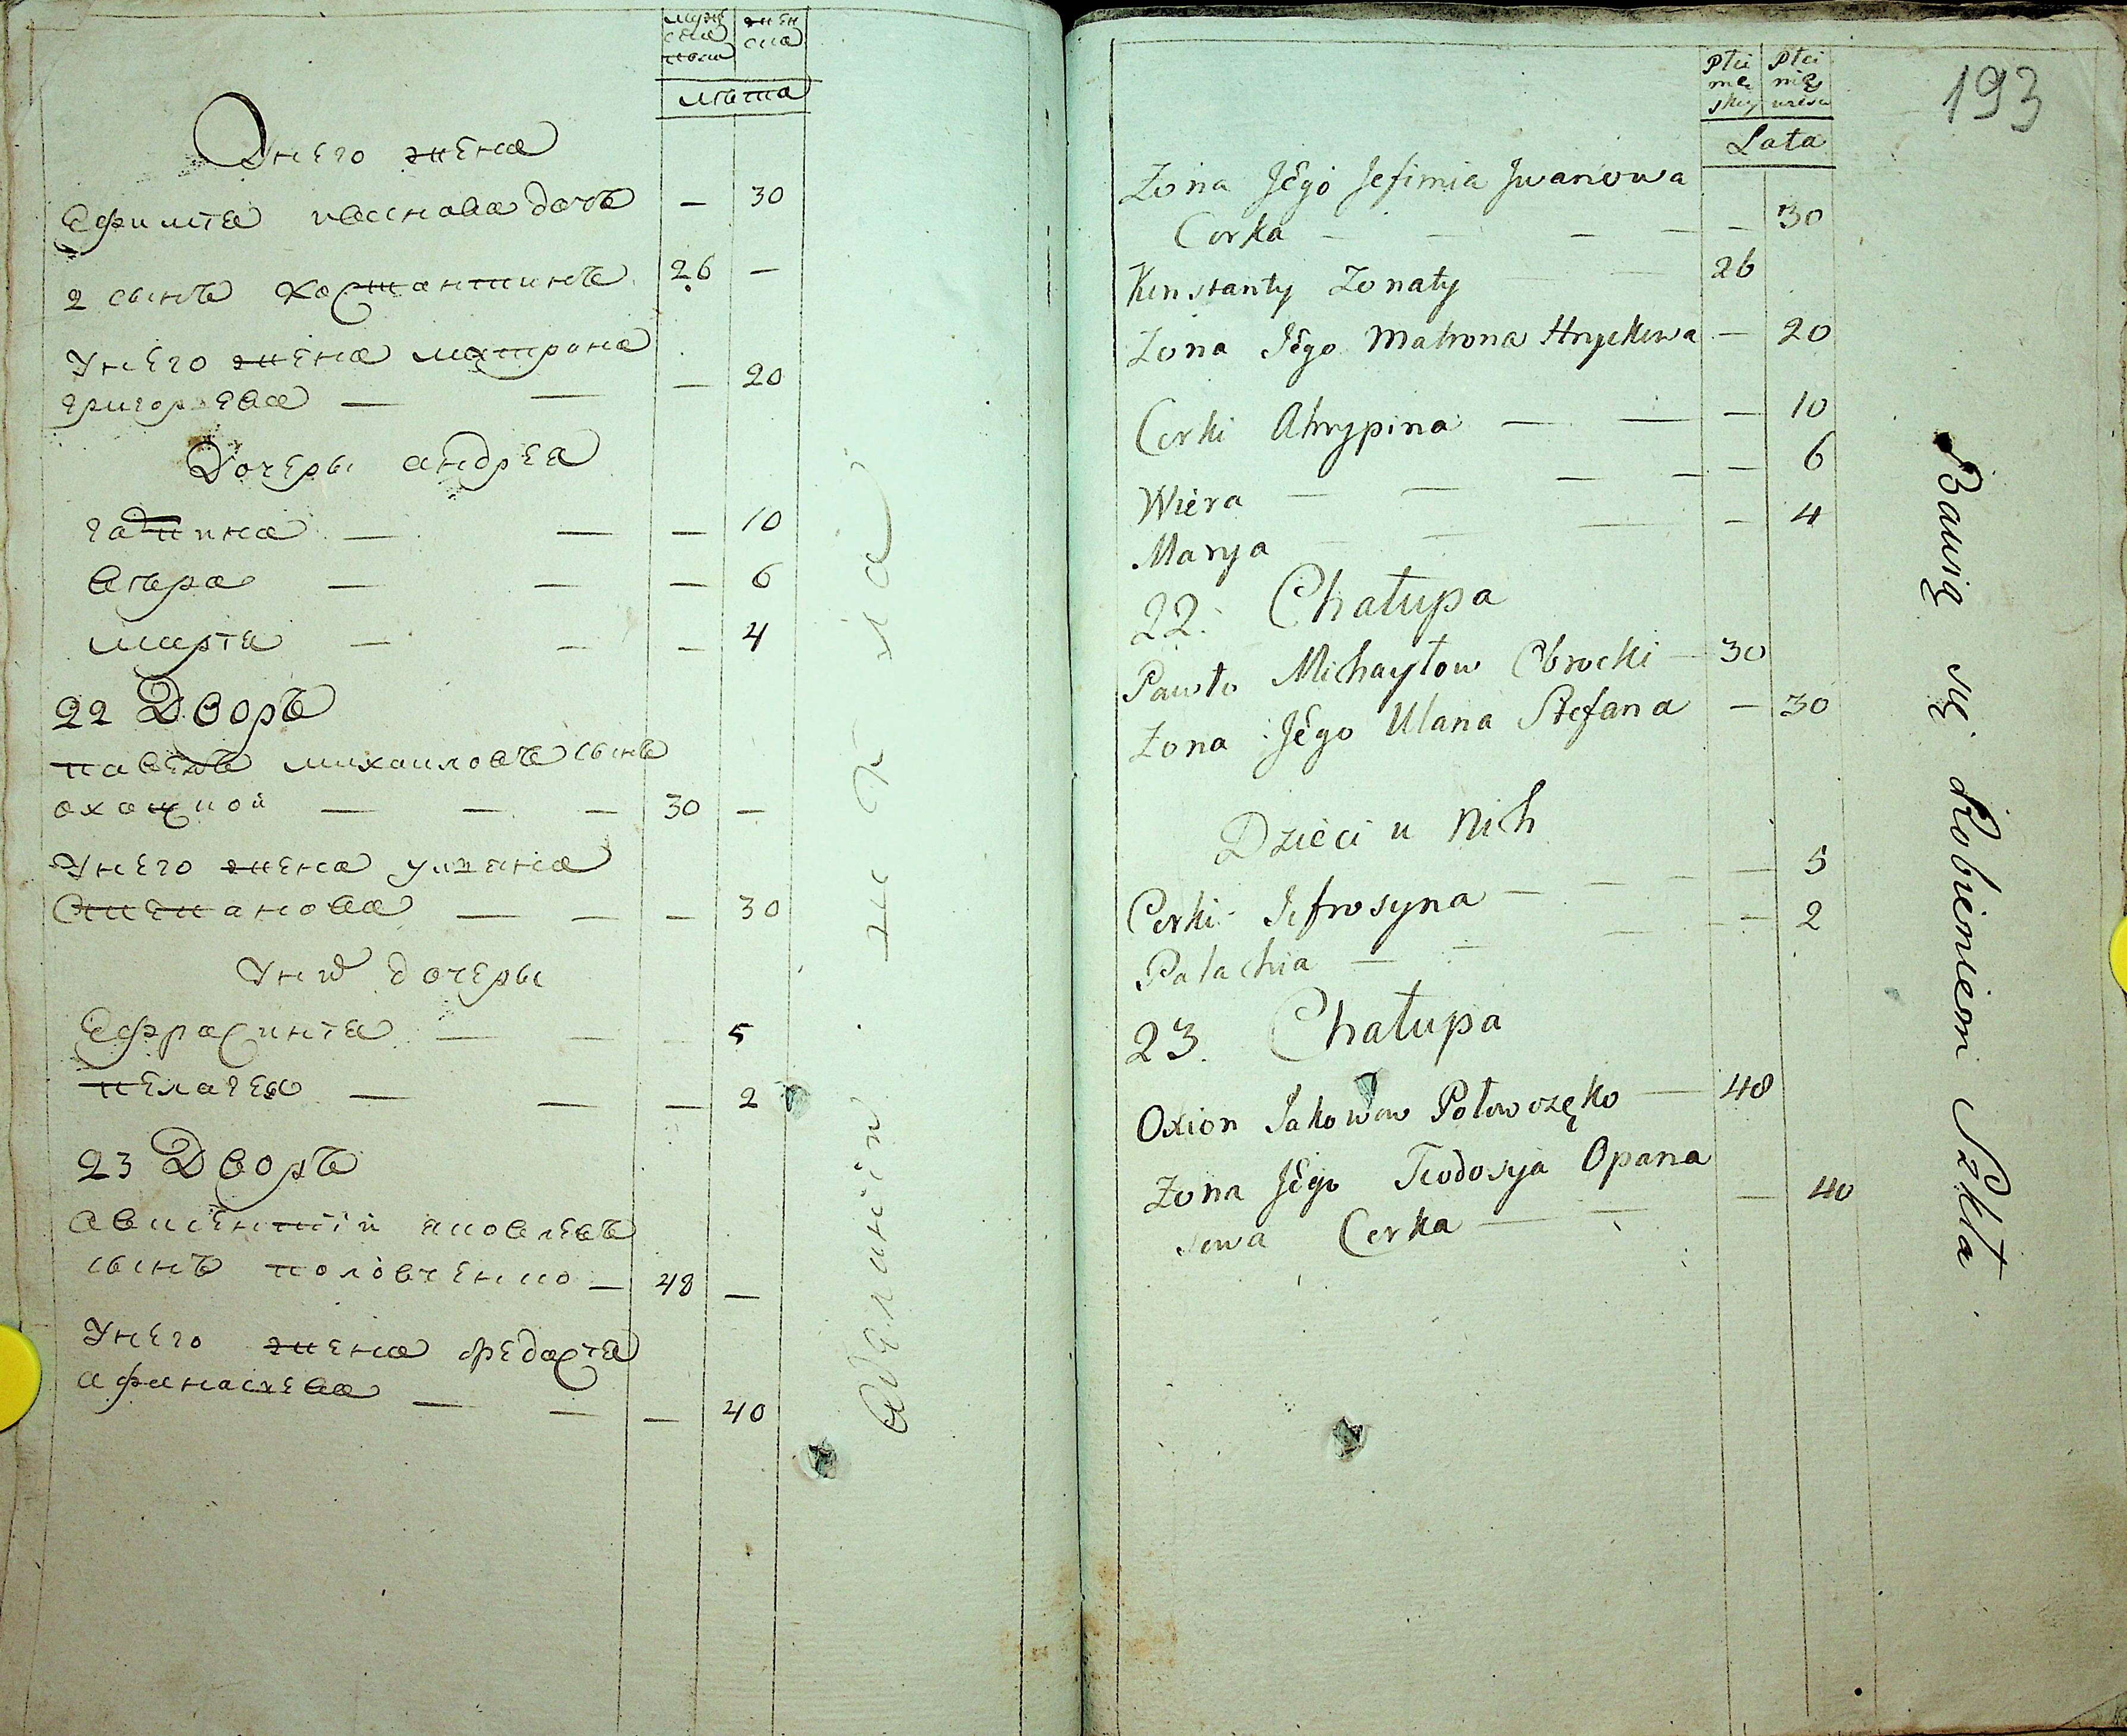 мужеска полу
женска
лѣта
У него жена
Ефимія иванова дочь — 30
2 сынъ Костантинъ 26 —
У него жена матрона
григорьева — — — 20
Дочеры андрея
— — — 10
Вѣра — — — 6
марія — — — 4
22 Дворъ
павелъ михаиловъ сынъ
— — — 30 —
У него жена уляна
Степанова — — — 30
У них дочеры
Ефрасинія — — — 5
пелагея — — — 2
23 Дворъ
Авксентій яковлевъ
сынъ половченко — 48 —
У него жена федосія
афанасиева — — — 40
193
Płci męskiey
Płci
Lata
Zona Jego Jefimia Jwanowa
Corka — — — — — 30
Konstanty Zonaty 26
Zona Jego Matrona Hryckowa — 20
Corki Ahrypina — — — 10
Wiera — — — — — 6
Marya — — — — 4
22. Chałupa
Pawło Michayłow Obrocki — 30
Zona Jego Ulana Stefana — 30
Dzieci u Nich
Corki Jefrosyna — — — — 5
Palachia — — — — 2
23. Chałupa
Oxion Jakowow Połowczęko — 48
Zona Jego Teodosya Opana
sowa Corka — — — 40
Bawią się Robieniem Szkła.